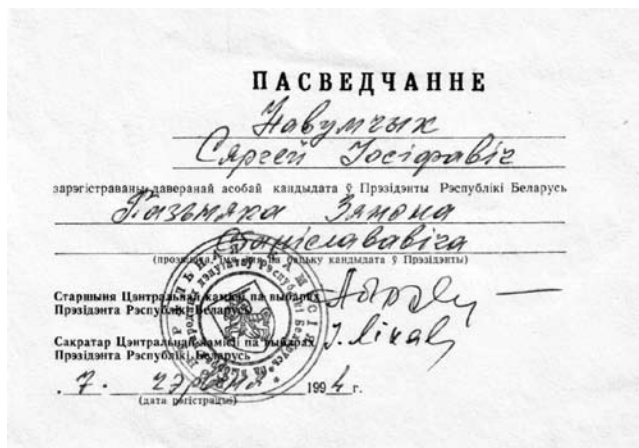 ПАСВЕДЧАННЕ
Навумчык
Сяргей Іосіфавіч
зарэгістраваны даверанай асобай кандыдата ў Прэзідэнты Рэспублікі Беларусь
Пазьняка Зянона
Станіслававіча
(прозвішча, імя, імя па бацьку кандыдата ў Прэзідэнты)
Старшыня Цэнтральнай камісіі па выбарах
Прэзідэнта Рэспублікі Беларусь
Сакратар Цэнтральнай камісіі па выбарах
Прэзідэнта Рэспублікі Беларусь
І. Ліхач
7. чэрвеня 1994 г.
(дата рэгістрацыі)